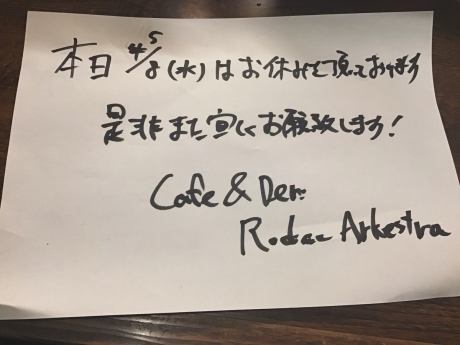 本日 4/5 8(水)はお休みを頂いております
是非また宜しくお願致します!
Cafe & Deli
Arkestra